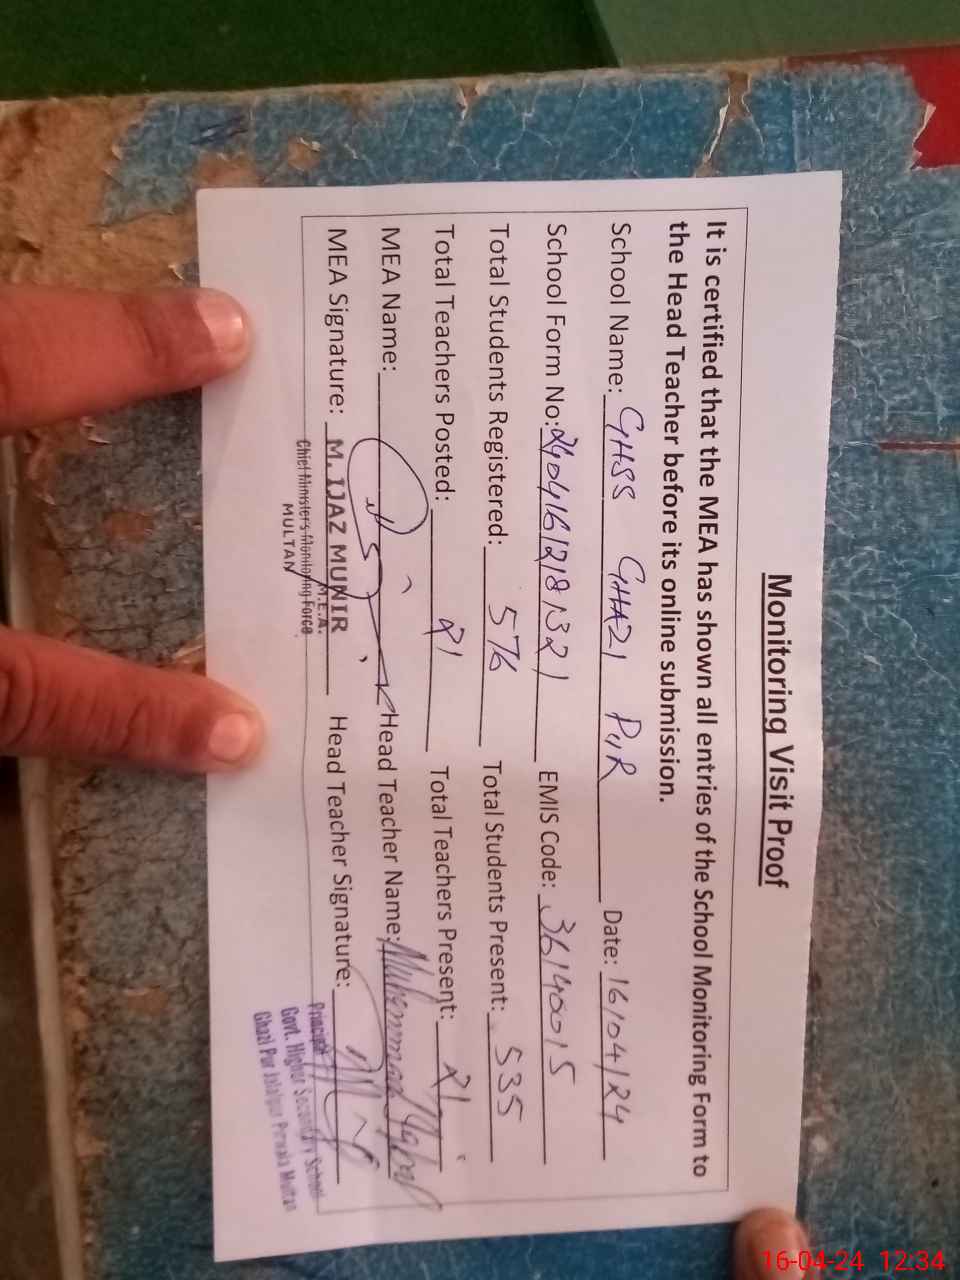 Monitoring Visit Proof
It is certified that the MEA has shown all entries of the School Monitoring Form to
the Head Teacher before its online submission.
School Name: GHSS GHAZI PUR Date: 16/04/24
School Form No: 24041612181321 EMIS Code: 36140015
Total Students Registered: 576 Total Students Present: 535
Total Teachers Posted: 21 Total Teachers Present: 21
MEA Name: Head Teacher Name: Muhammad
MEA Signature: Head Teacher Signature:
M. IJAZ MUNIR
M.E.A.
Chief Ministers Monitoring Force
MULTAN
Principal
Govt. Higher Secondary School
Ghazi Pur Jalalpur Pirwala Multan
16-04-24 12:34